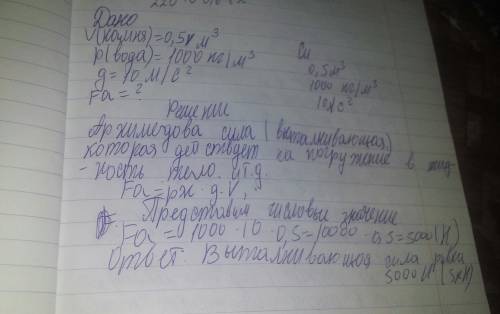 Дано
V(камня)=0,5м³
р(вода)=1000 кг/м³
g=10 м/с²
Fa=?
Си
0,5м³
1000 кг/м³
Решение
Архимедова сила (выталкивающая)
которая действует на погружение в жид-
-кость тело. и т.д.
Fa=рж·g·V,
Представим числовые значение
Fa=1000·10·0,5=10000·0,5=5000(Н)
Ответ. Выталкивающая сила равна
5000 Н (5кН)